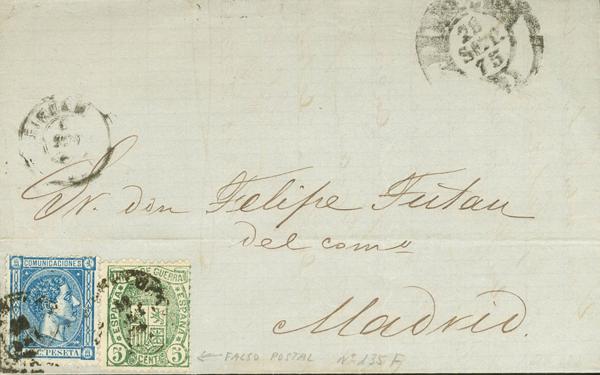 28
SET
75
Sr. don Felipe Tutau
del como
Madrid.
COMUNICACIONES
PESETA
DE GUERRA
ESPAÑA
ESPAÑA
5 CENTS 5
← FALSO POSTAL Nº 135 F